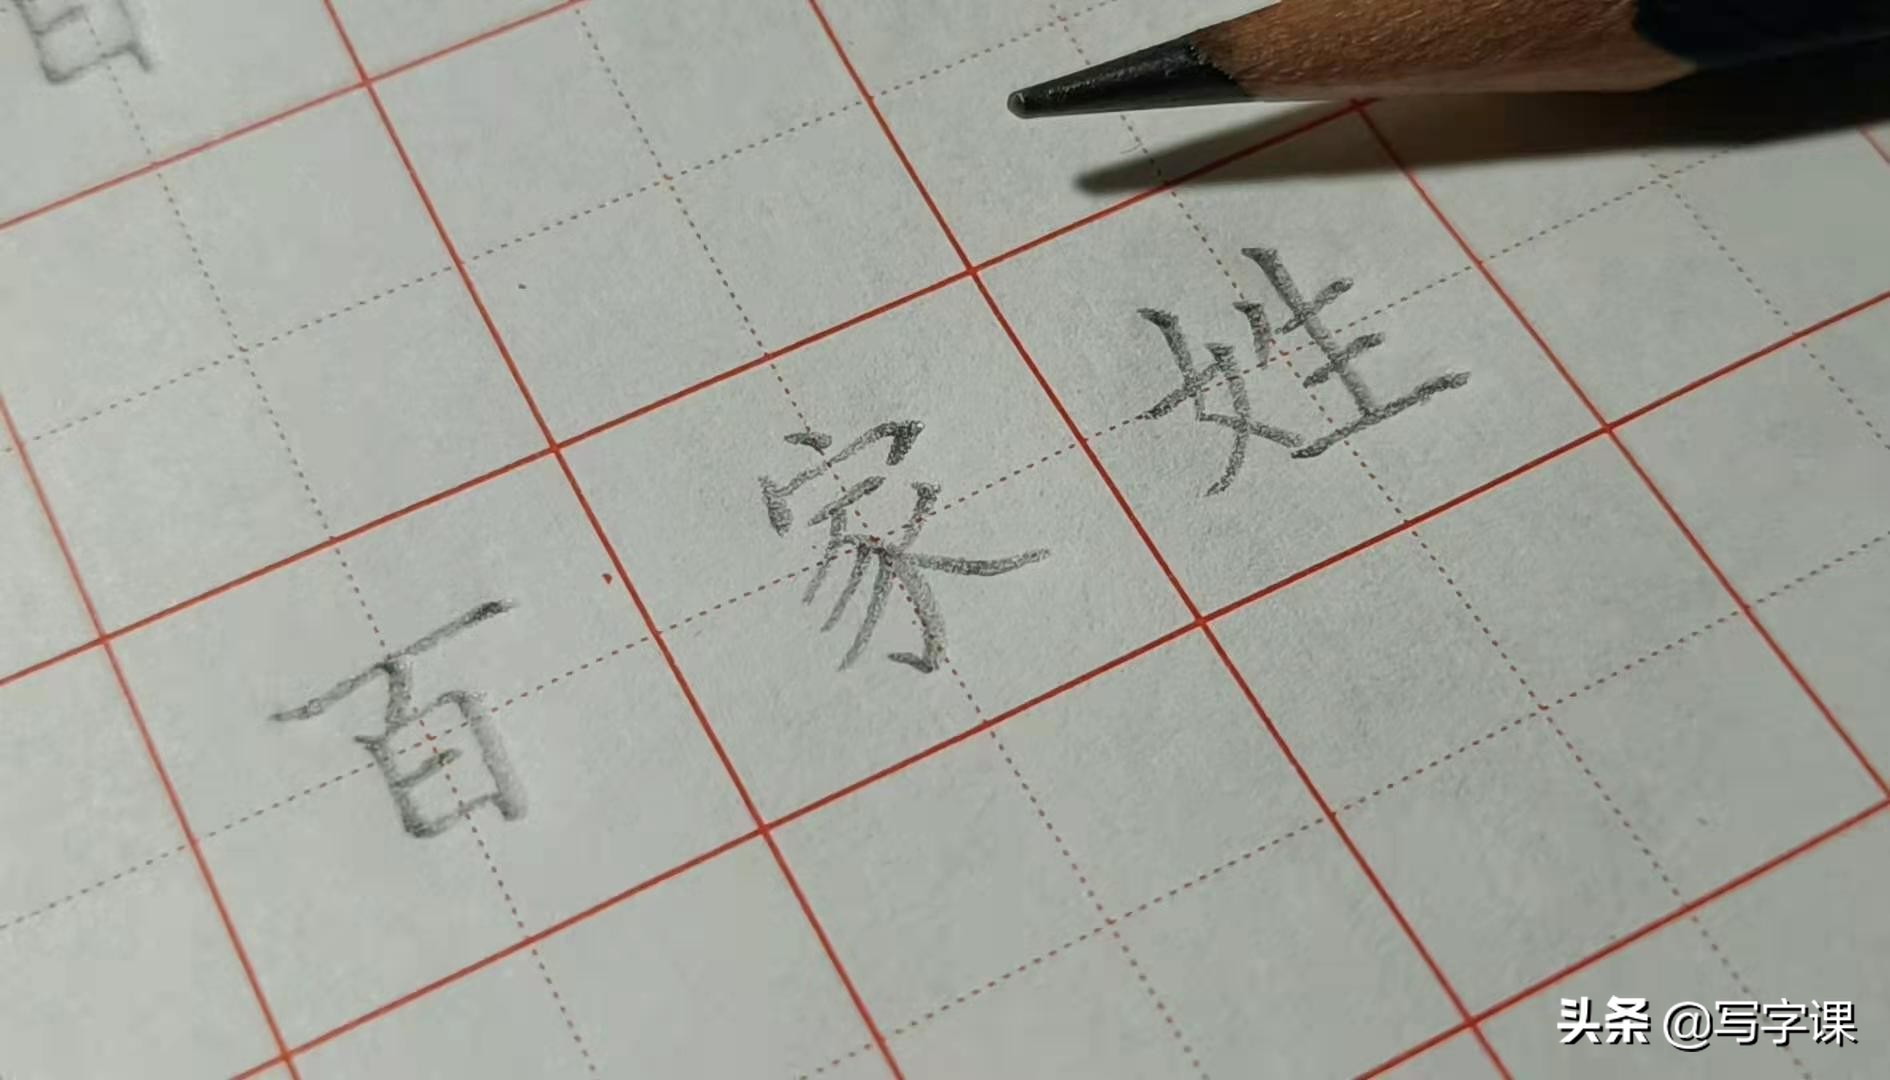 百家姓
头条 @写字课